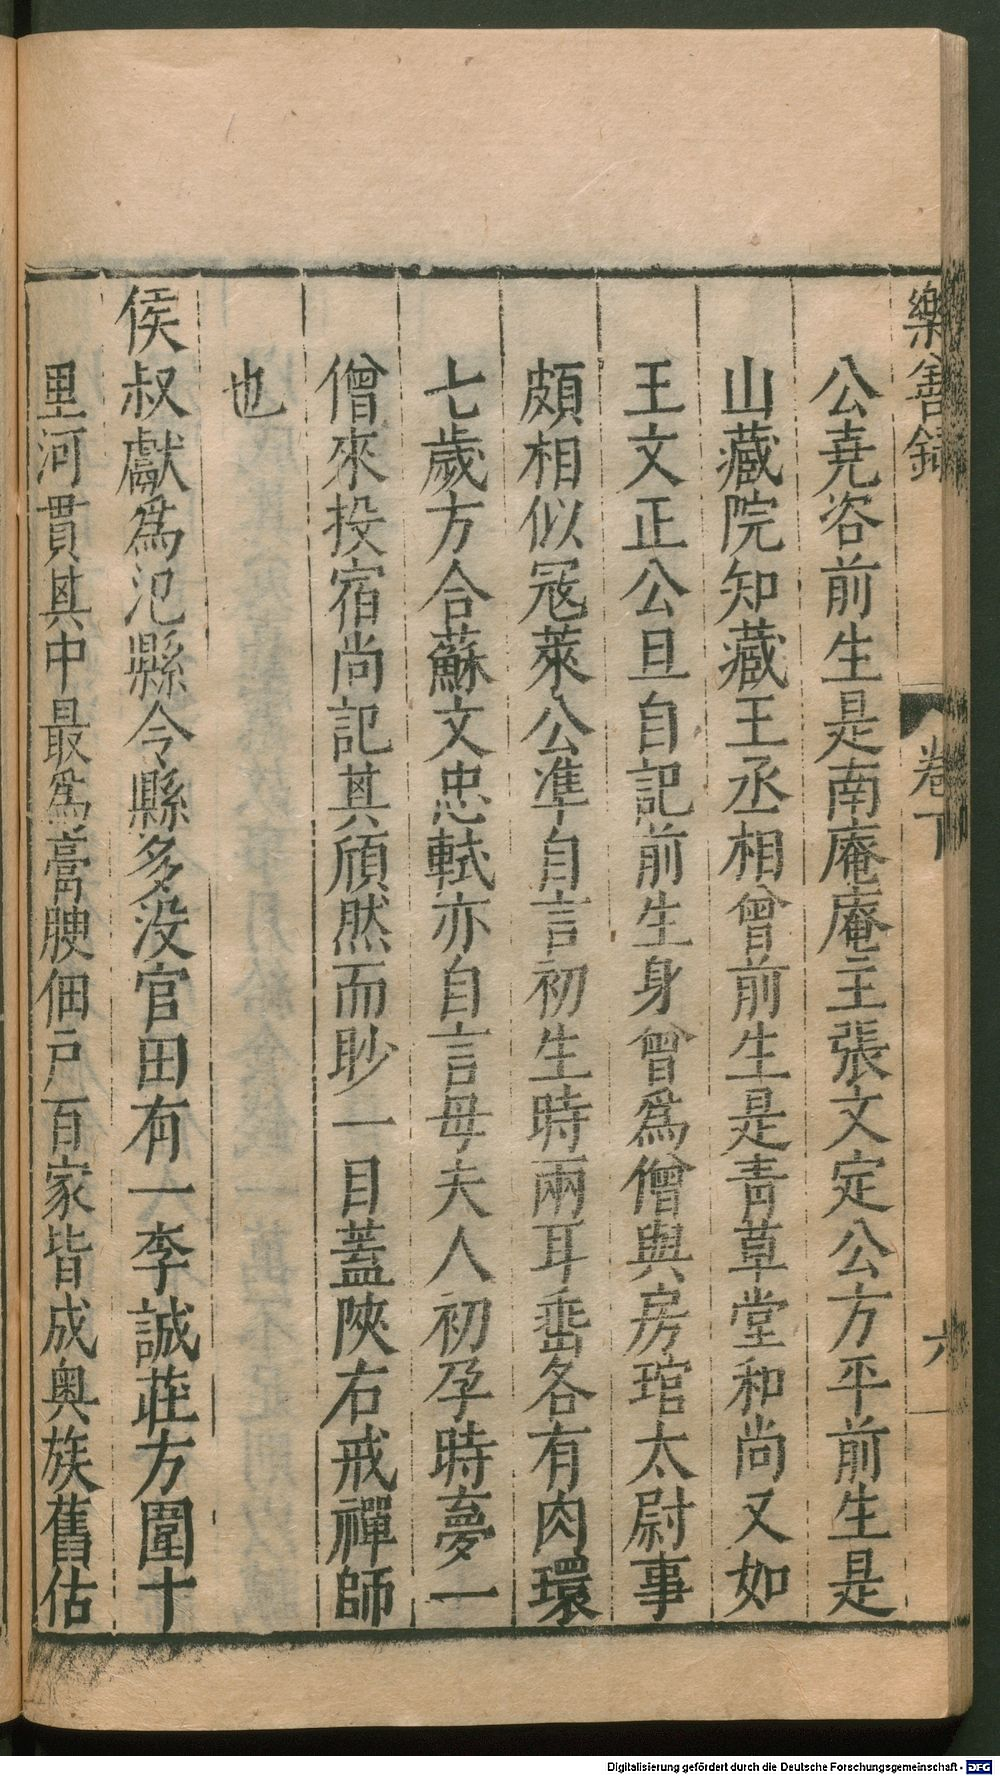 樂善録
卷下
六
公堯咨前生是南庵庵主張文定公方平前生是
山藏院知藏王丞相曾前生是靑草堂和尚又如
王文正公旦自記前生身曾爲僧與房琯太尉事
頗相似冦萊公準自言初生時兩耳埀各有肉環
七歲方合蘇文忠軾亦自言母夫人初孕時夢一
僧來投宿尚記其頎然而眇一目蓋陝右戒禪師
也
侯叔獻爲氾縣令縣多没官田有一李誠莊方圍十
里河貫其中最爲膏腴佃戸百家皆成奥族舊估
Digitalisierung gefördert durch die Deutsche Forschungsgemeinschaft - DFG